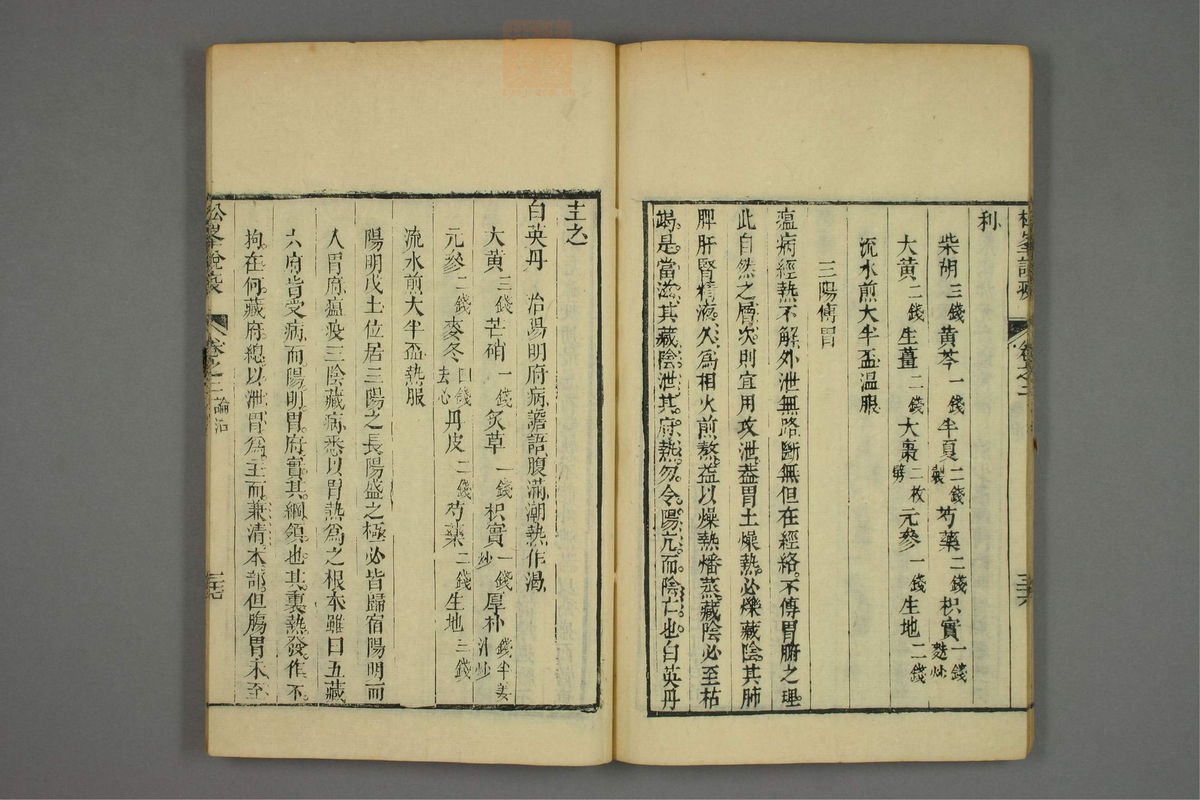 松峯說疫 卷之二 三六
利
柴胡三錢黃芩一錢半夏二錢製芍藥二錢枳實一錢麩炒
大黃二錢生薑二錢大棗二枚劈元參一錢生地二錢
流水煎大半盃温服
三陽傳胃
瘟病經熱不解外泄無路斷無但在經絡不傳胃腑之理
此自然之層次則宜用攻泄蓋胃土燥熱必爍藏陰其肺
脾肝腎精液久為相火煎熬益以燥熱燔蒸藏陰必至枯
竭是當滋其藏陰泄其府熱勿令陽亢而陰亡也白英丹
主之
白英丹 治陽明府病譫語腹滿潮熱作渴
大黃三錢芒硝一錢炙草一錢枳實一錢炒厚朴錢半姜汁炒
元參二錢麥冬四錢去心丹皮二錢芍藥二錢生地三錢
流水煎大半盃熱服
陽明戊土位居三陽之長陽盛之極必皆歸宿陽明而
入胃府瘟疫三陰藏病悉以胃熱為之根本雖曰五藏
六府皆受病而陽明胃府實其綱領也其裏熱發作不
拘在何藏府總以泄胃為主而兼清本部但腸胃未至
松峯說疫 卷之二 論治 三七